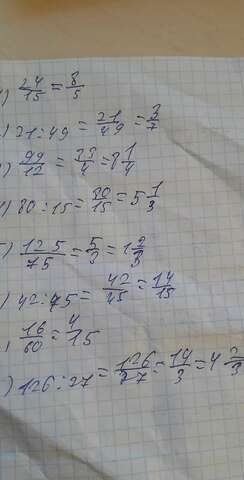 ) 24/15 = 8/5
) 21 : 49 = 21/49 = 3/7
) 99/12 = 33/4 = 8 1/4
) 80 : 15 = 80/15 = 5 1/3
) 125/75 = 5/3 = 1 2/3
) 42 : 45 = 42/45 = 14/15
) 16/60 = 4/15
) 126 : 27 = 126/27 = 14/3 = 4 2/3